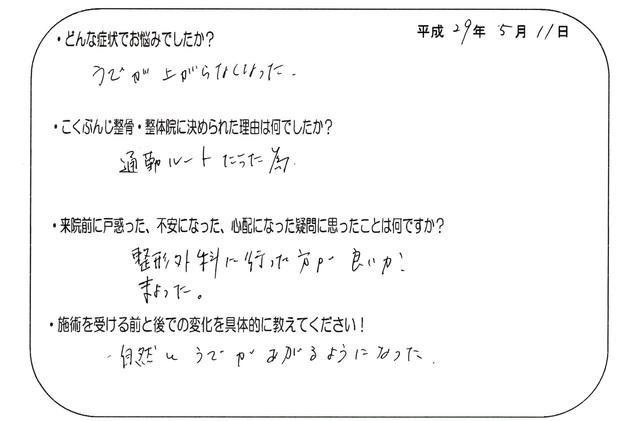 平成 29年 5月 11日
・どんな症状でお悩みでしたか?
うでが上がらなくなった.
・こくぶんじ整骨・整体院に決められた理由は何でしたか?
通勤ルートだった為.
・来院前に戸惑った、不安になった、心配になった疑問に思ったことは何ですか?
整形外科に行った方が良いか?
まよった。
・施術を受ける前と後での変化を具体的に教えてください!
・自然とうでがあがるようになった.